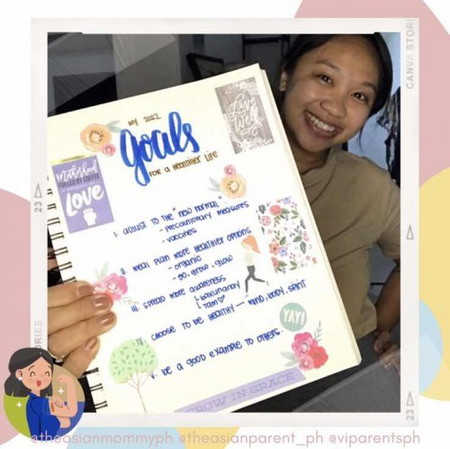 CANVA STORIES
23
my 2022
goals
FOR A HEALTHIER LIFE
Live
Well
Makeshift
FUELED BY COFFEE
Love
I. ADJUST TO THE "NEW NORMAL"
- PRECAUTIONARY MEASURES
- VACCINES
II. MEAL PLAN MORE HEALTHIER OPTIONS
- ORGANIC
- GO, GROW, GLOW
III. SPREAD MORE AWARENESS
↳ BAKUNANAY
↳ TAP ♡
IV. CHOOSE TO BE HEALTHY — MIND, BODY, SPIRIT
YAY!
V. BE A GOOD EXAMPLE TO OTHERS.
GROW IN GRACE
23
STORIES
23
@theasianmommyph @theasianparent_ph @viparentsph